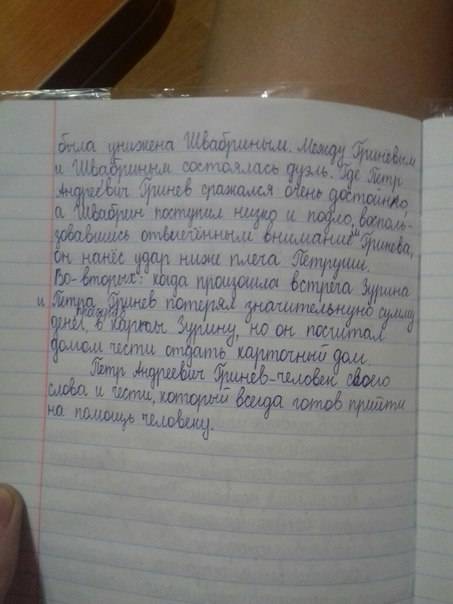 была унижена Швабриным. Между Гриневым
и Швабриным состоялась дуэль. Где Петр
Андреевич Гринев сражался очень достойно,
а Швабрин поступил низко и подло, восполь-
зовавшись отвлечённым вниманием Гринева,
он нанёс удар ниже плеча Петруши.
Во-вторых: когда произошла встреча Зурина
и Петра, Гринев потерял значительную сумму
денег, в карты Зурину, но он посчитал
домом чести отдать карточный дом.
Петр Андреевич Гринёв-человек своего
слова и чести, который всегда готов прийти
на помощь человеку.